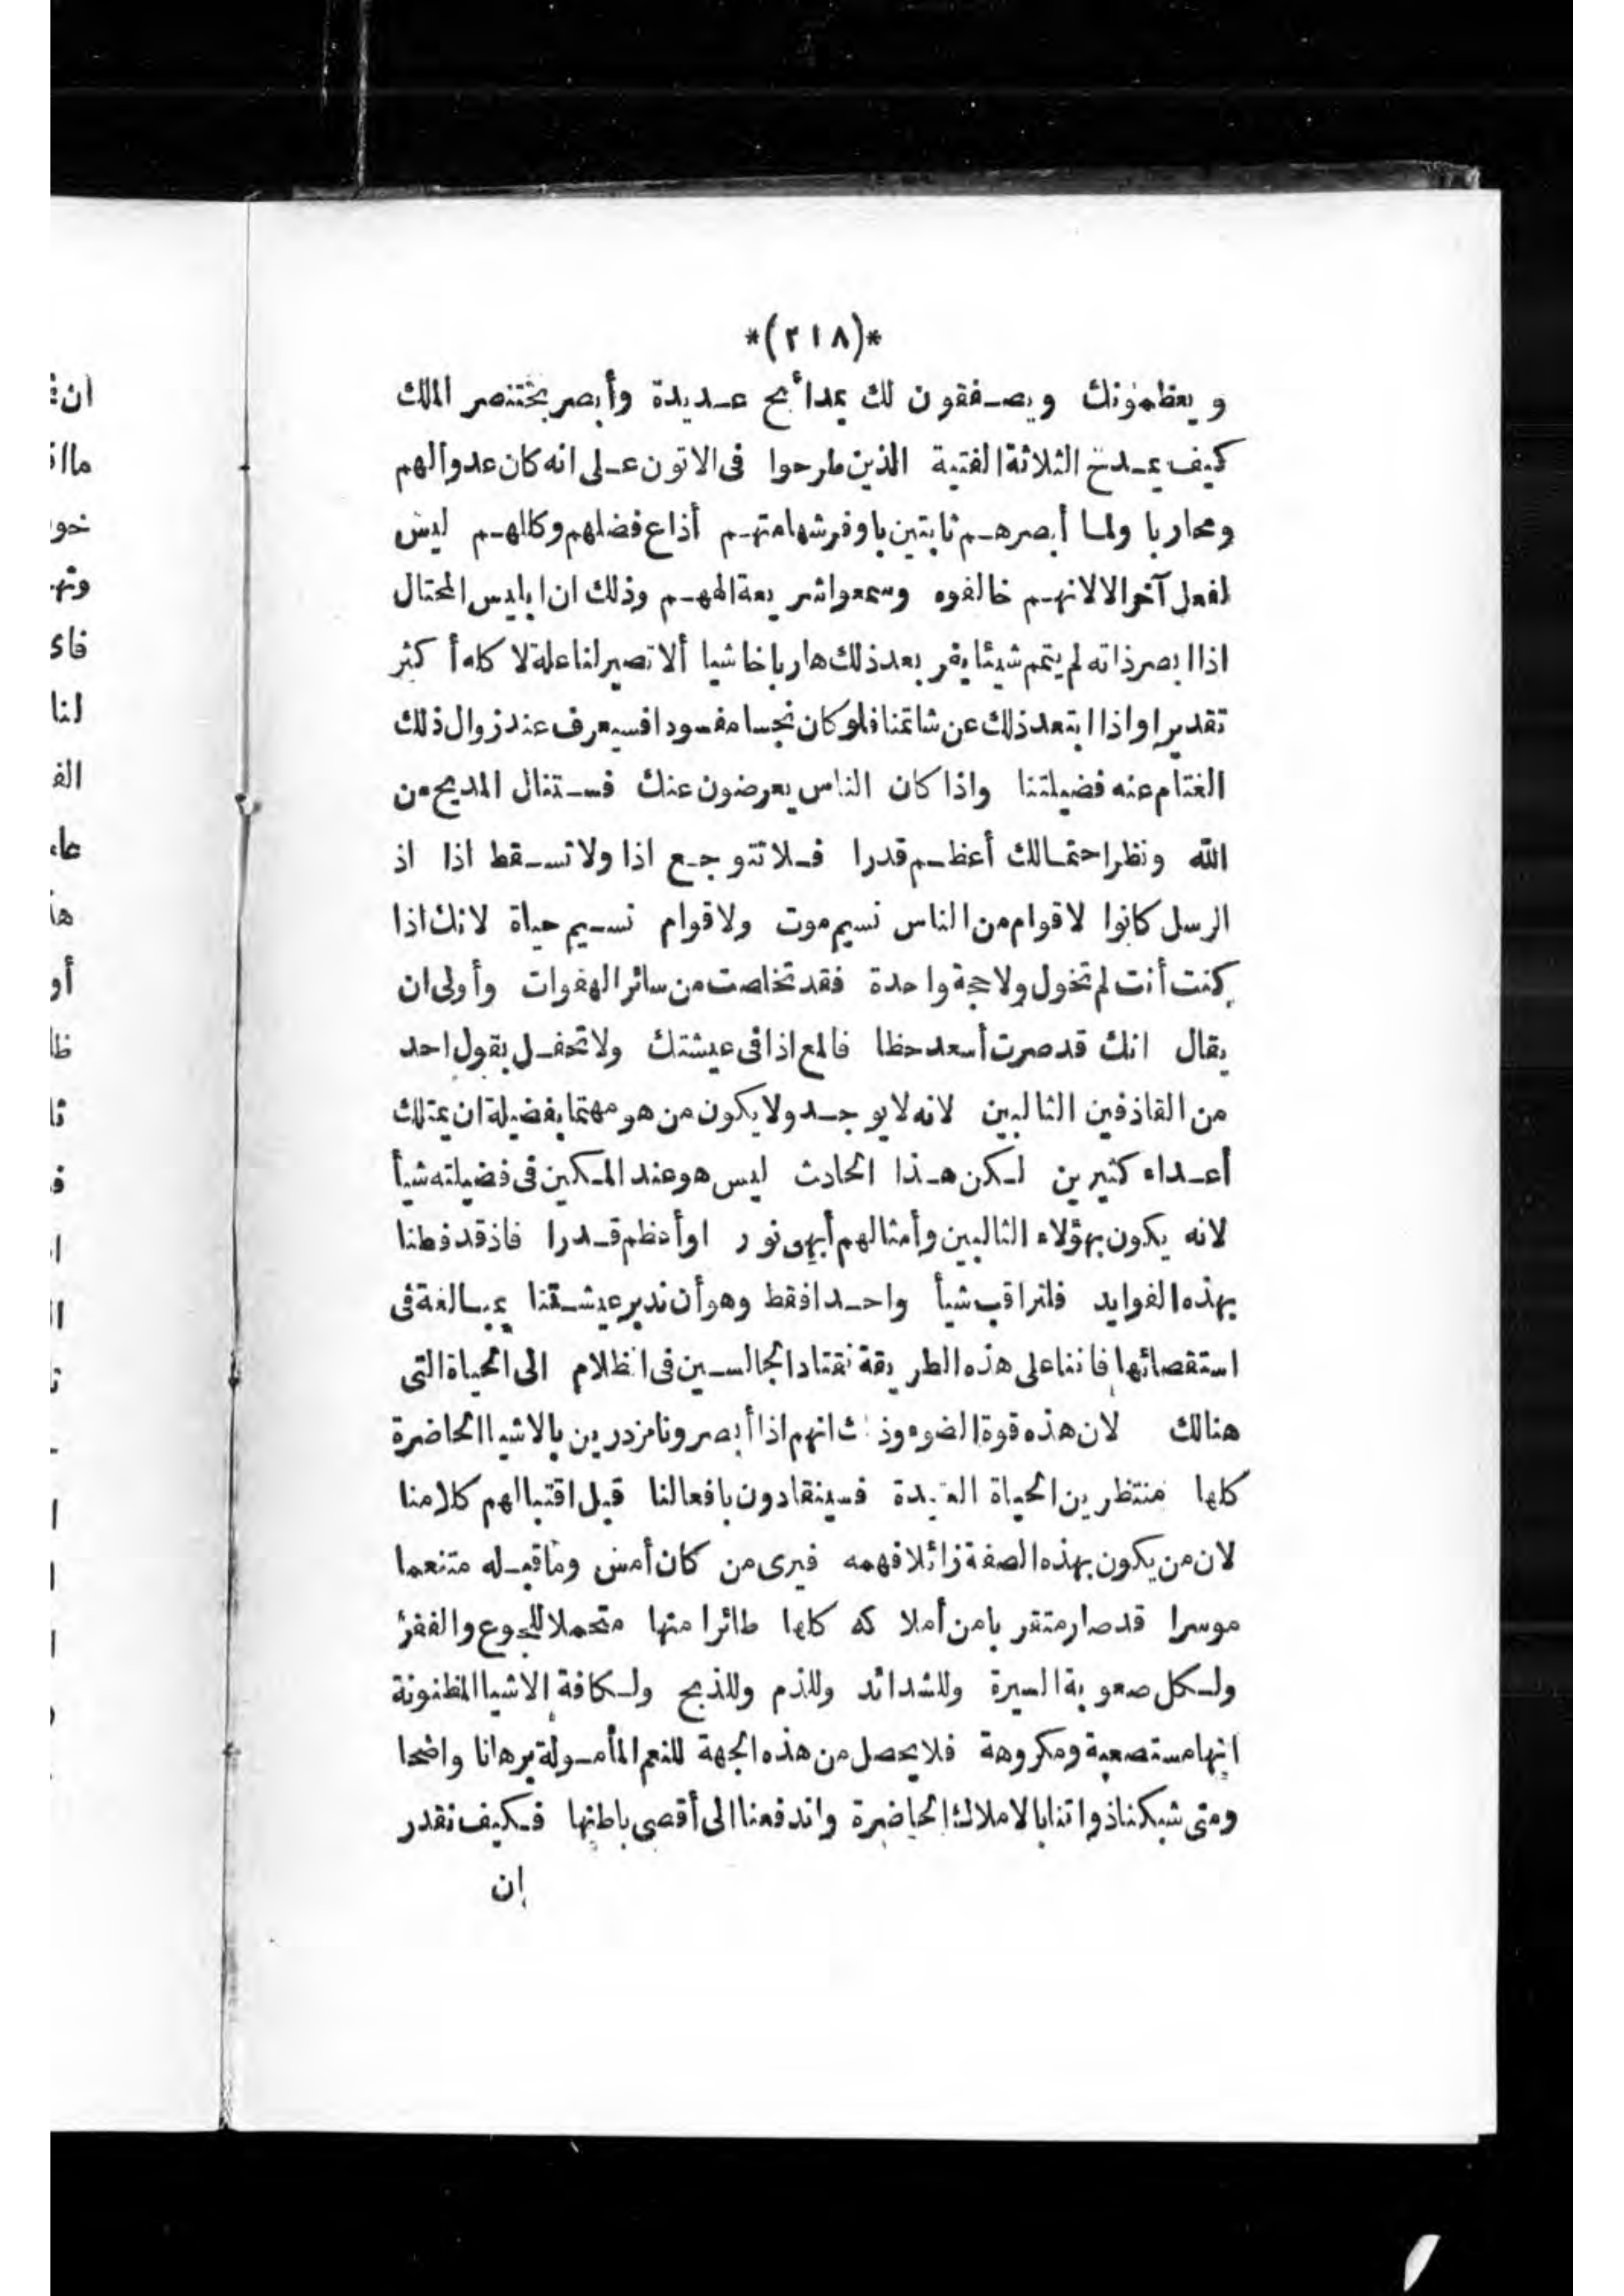 *(٢١٨)*
ويعظمونك ويصفقون لك بمدائح عديدة وأبصر بختنصر الملك
كيف يمدح الثلاثة الفتية الذين طرحوا فى الاتون على انه كان عدوا لهم
ومحاربا ولما أبصرهم ثابتين باوفر شهامتهم أذاع فضلهم وكالهم ليس
لفعل آخر الا لانهم خالفوه وسمعوا شريعة الههم وذلك ان ابليس المحتال
اذا ابصر ذاته لم يتمم شيئا يفر بعد ذلك هاربا خاشيا ألا تصير لنا علة لا كاه أكثر
تقديرا واذا ابتعد ذلك عن شاتمنا فلو كان نجسا مفسودا فسيعرف عند زوال ذلك
الغتام عنه فضيلتنا واذا كان الناس يعرضون عنك فستنال المديح من
الله ونظر احتمالك أعظم قدرا فلا تتوجع اذا ولا تسقط اذا اذ
الرسل كانوا لاقوام من الناس نسيم موت ولاقوام نسيم حياة لانك اذا
كنت أنت لم تخول ولا حجة واحدة فقد تخلصت من سائر الهفوات وأولى ان
يقال انك قد صرت أسعد حظا فالمع اذا فى عيشتك ولا تحفل بقول احد
من القاذفين الثالبين لانه لا يوجد ولا يكون من هو مهتما بفضيلة ان يمتلك
أعداء كثيرين لكن هذا الحادث ليس هو عند المكين فى فضيلته شيأ
لانه يكون بهؤلاء الثالبين وأمثالهم أبهى نور اوأعظم قدرا فاذ قد فطنا
بهذه الفوايد فلنراقب شيأ واحدا فقط وهو أن ندبر عيشتنا بمبالغة فى
استقصائها فاننا على هذه الطريقة نقتاد الجالسين فى الظلام الى الحياة التى
هنالك لان هذه قوة الضوء وذلك انهم اذا أبصرونا مزدرين بالاشيا الحاضرة
كلها منتظرين الحياة العتيدة فسينقادون بافعالنا قبل اقتبالهم كلامنا
لان من يكون بهذه الصفة زائلا فهمه فيرى من كان أمس وما قبله متنعما
موسرا قد صار متقربا من أملاكه كلها طائرا منها متحملا للجوع والفقر
ولكل صعوبة السيرة وللشدائد وللذم وللذبح ولكافة الاشيا المظنونة
انها مستصعبة ومكروهة فلا يحصل من هذه الجهة للنعم المأمولة برهانا واضحا
ومتى شبكنا ذواتنا بالاملاك الحاضرة واندفعنا الى أقصى باطنها فكيف نقدر
ان